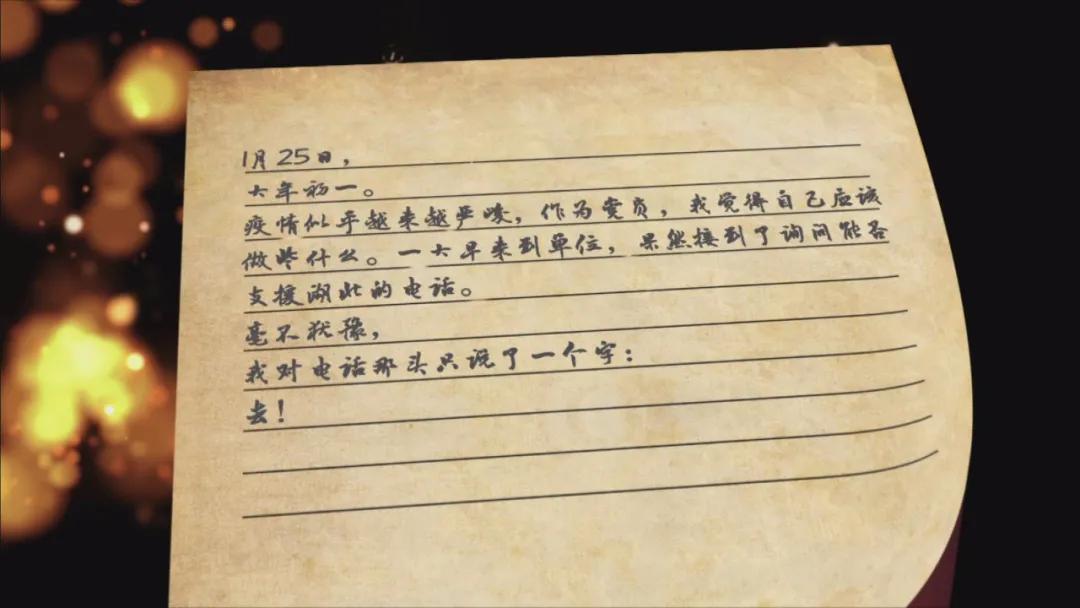 1月25日，
大年初一。
疫情似乎越来越严峻，作为党员，我觉得自己应该
做些什么。一大早来到单位，果然接到了询问能否
支援湖北的电话。
毫不犹豫，
我对电话那头只说了一个字：
去！